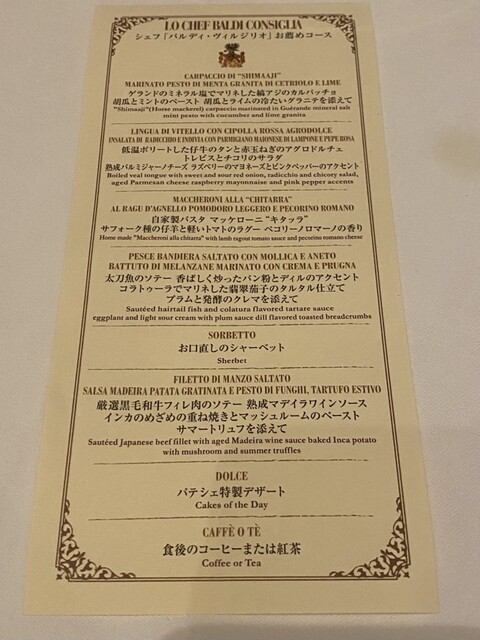 LO CHEF BALDI CONSIGLIA
シェフ「バルディ・ヴィルジリオ」お薦めコース
CARPACCIO DI "SHIMAAJI"
MARINATO PESTO DI MENTA GRANITA DI CETRIOLO E LIME
ゲランドのミネラル塩でマリネした縞アジのカルパッチョ
胡瓜とミントのペースト 胡瓜とライムの冷たいグラニテを添えて
"Shimaaji"(Horse mackerel) carpaccio marinated in Guérande mineral salt
mint pesto with cucumber and lime granita
LINGUA DI VITELLO CON CIPOLLA ROSSA AGRODOLCE
INSALATA DI RADICCHIO E INDIVIA CON PARMIGIANO MAIONESE DI LAMPONE E PEPE ROSA
低温ポリートした仔牛のタンと赤玉ねぎのアグロドルチェ
トレビスとチコリのサラダ
熟成パルミジャーノチーズ ラズベリーのマヨネーズとピンクペッパーのアクセント
Boiled veal tongue with sweet and sour red onion, radicchio and chicory salad,
aged Parmesan cheese raspberry mayonnaise and pink pepper accents
MACCHERONI ALLA "CHITARRA"
AL RAGU D'AGNELLO POMODORO LEGGERO E PECORINO ROMANO
自家製パスタ マッケローニ "キタッラ"
サフォーク種の仔羊と軽いトマトのラグー ペコリーノロマーノの香り
Home made "Maccheroni alla chitarra" with lamb ragout tomato sauce and pecorino romano cheese
PESCE BANDIERA SALTATO CON MOLLICA E ANETO
BATTUTO DI MELANZANE MARINATO CON CREMA E PRUGNA
太刀魚のソテー 香ばしく炒ったパン粉とディルのアクセント
コラトゥーラでマリネした翡翠茄子のタルタル仕立て
プラムと発酵のクレマを添えて
Sautéed hairtail fish and colatura flavored tartare sauce
eggplant and light sour cream with plum sauce dill flavored toasted breadcrumbs
SORBETTO
お口直しのシャーベット
Sherbet
FILETTO DI MANZO SALTATO
SALSA MADEIRA PATATA GRATINATA E PESTO DI FUNGHI, TARTUFO ESTIVO
厳選黒毛和牛フィレ肉のソテー 熟成マデイラワインソース
インカのめざめの重ね焼きとマッシュルームのペースト
サマートリュフを添えて
Sautéed Japanese beef fillet with aged Madeira wine sauce baked Inca potato
with mushroom and summer truffles
DOLCE
パテシェ特製デザート
Cakes of the Day
CAFFÈ O TÈ
食後のコーヒーまたは紅茶
Coffee or Tea